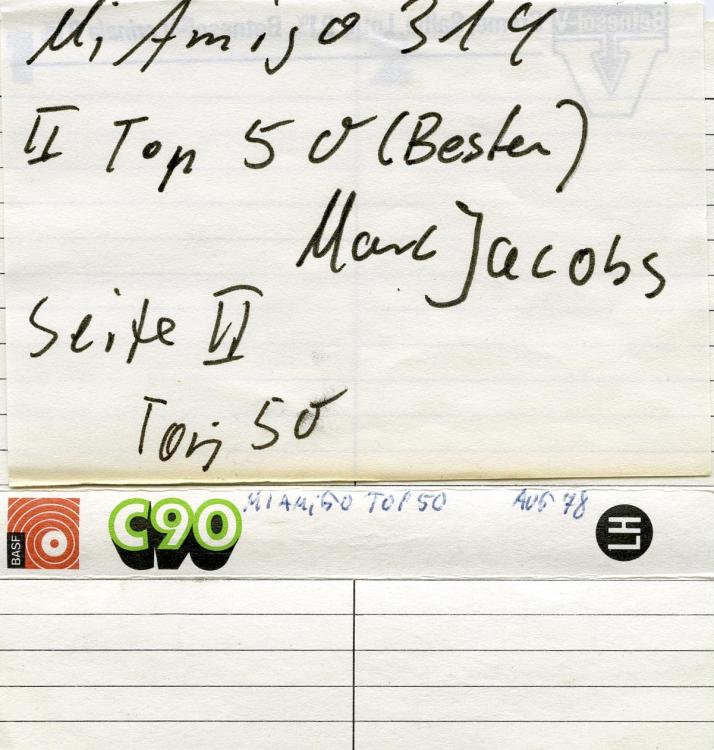 Mi Amigo 314
II Top 50 (Besten)
Marc Jacobs
Seite II
Top 50
BASF C90 MI AMIGO TOP 50 AUG 78 LH